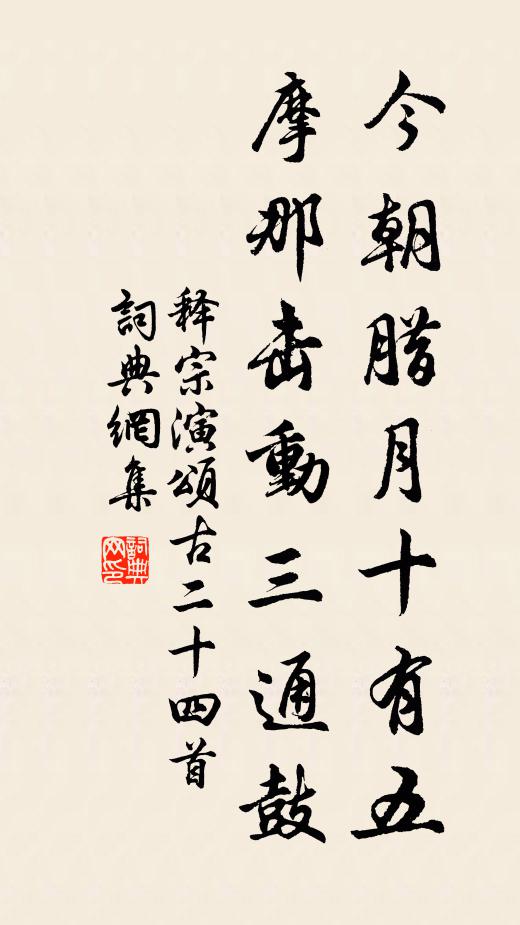 今朝腊月十有五
摩那击動三通鼓
释宗演頌古二十四首
詞典網集
詞典网印